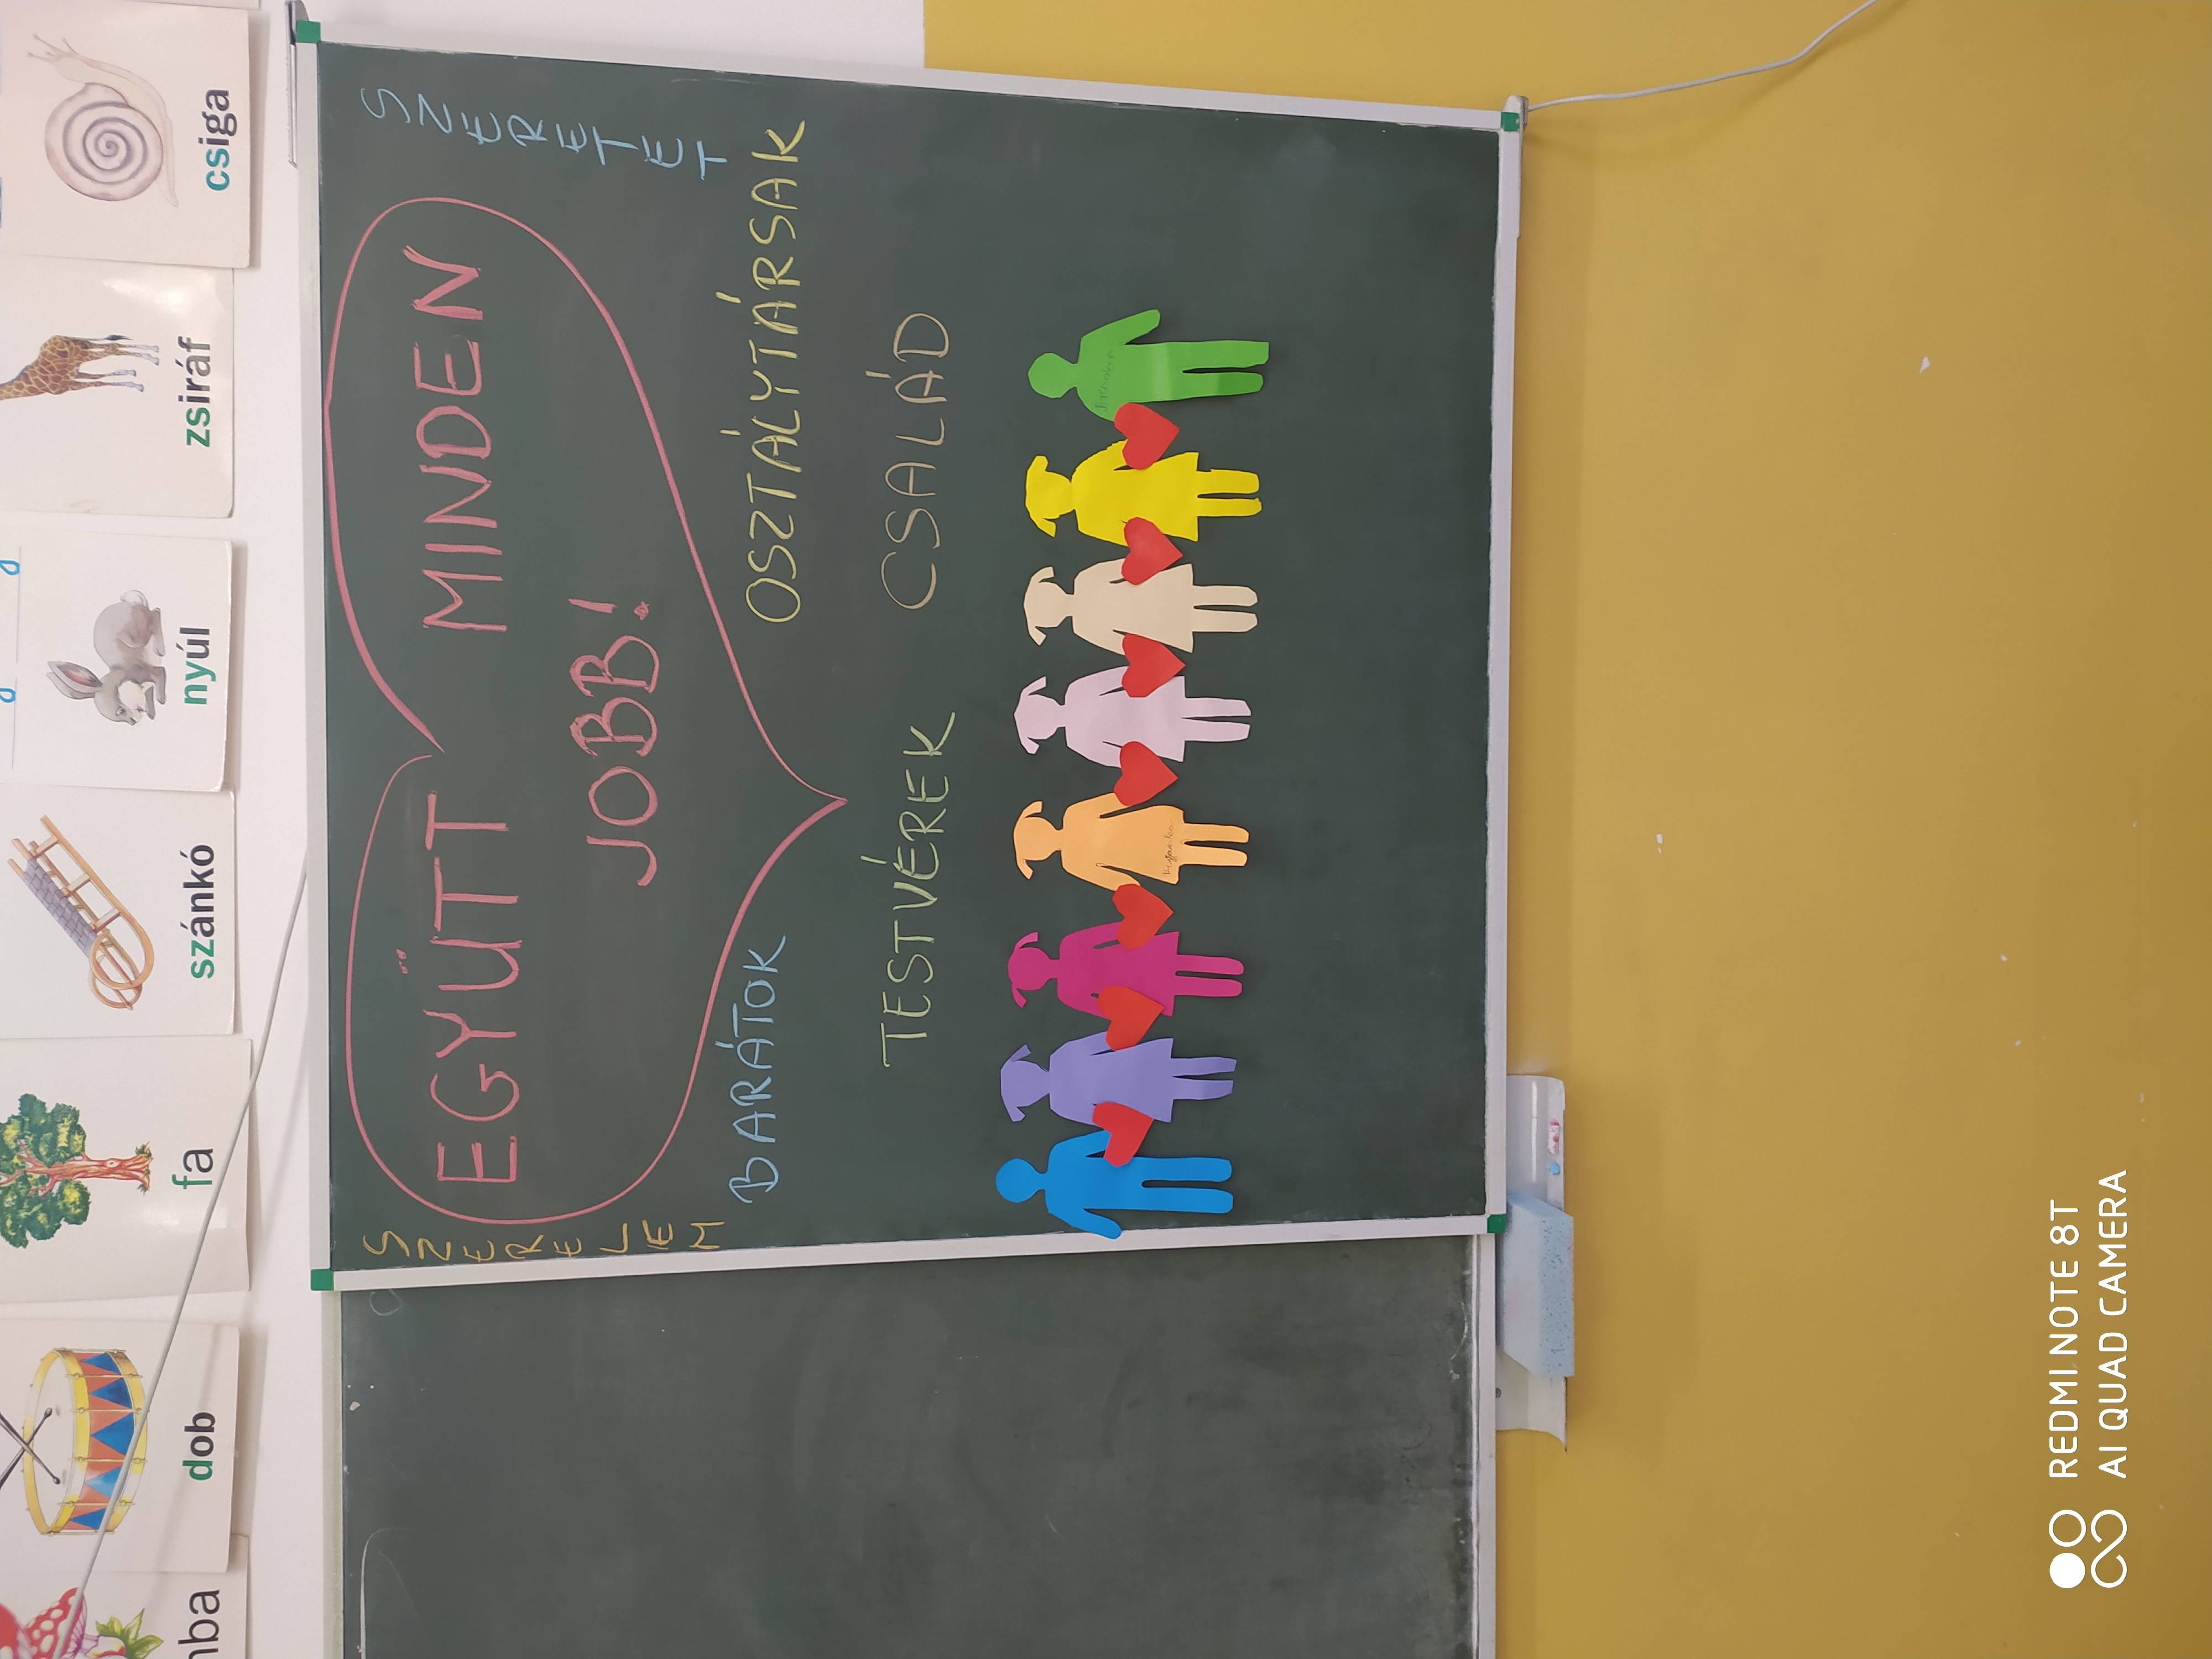 mba
dob
fa
szánkó
nyúl
zsiráf
csiga
EGYÜTT MINDEN
JOBB!
SZERELEM
SZERETET
BARÁTOK
OSZTÁLYTÁRSAK
TESTVÉREK
CSALÁD
REDMI NOTE 8T
AI QUAD CAMERA